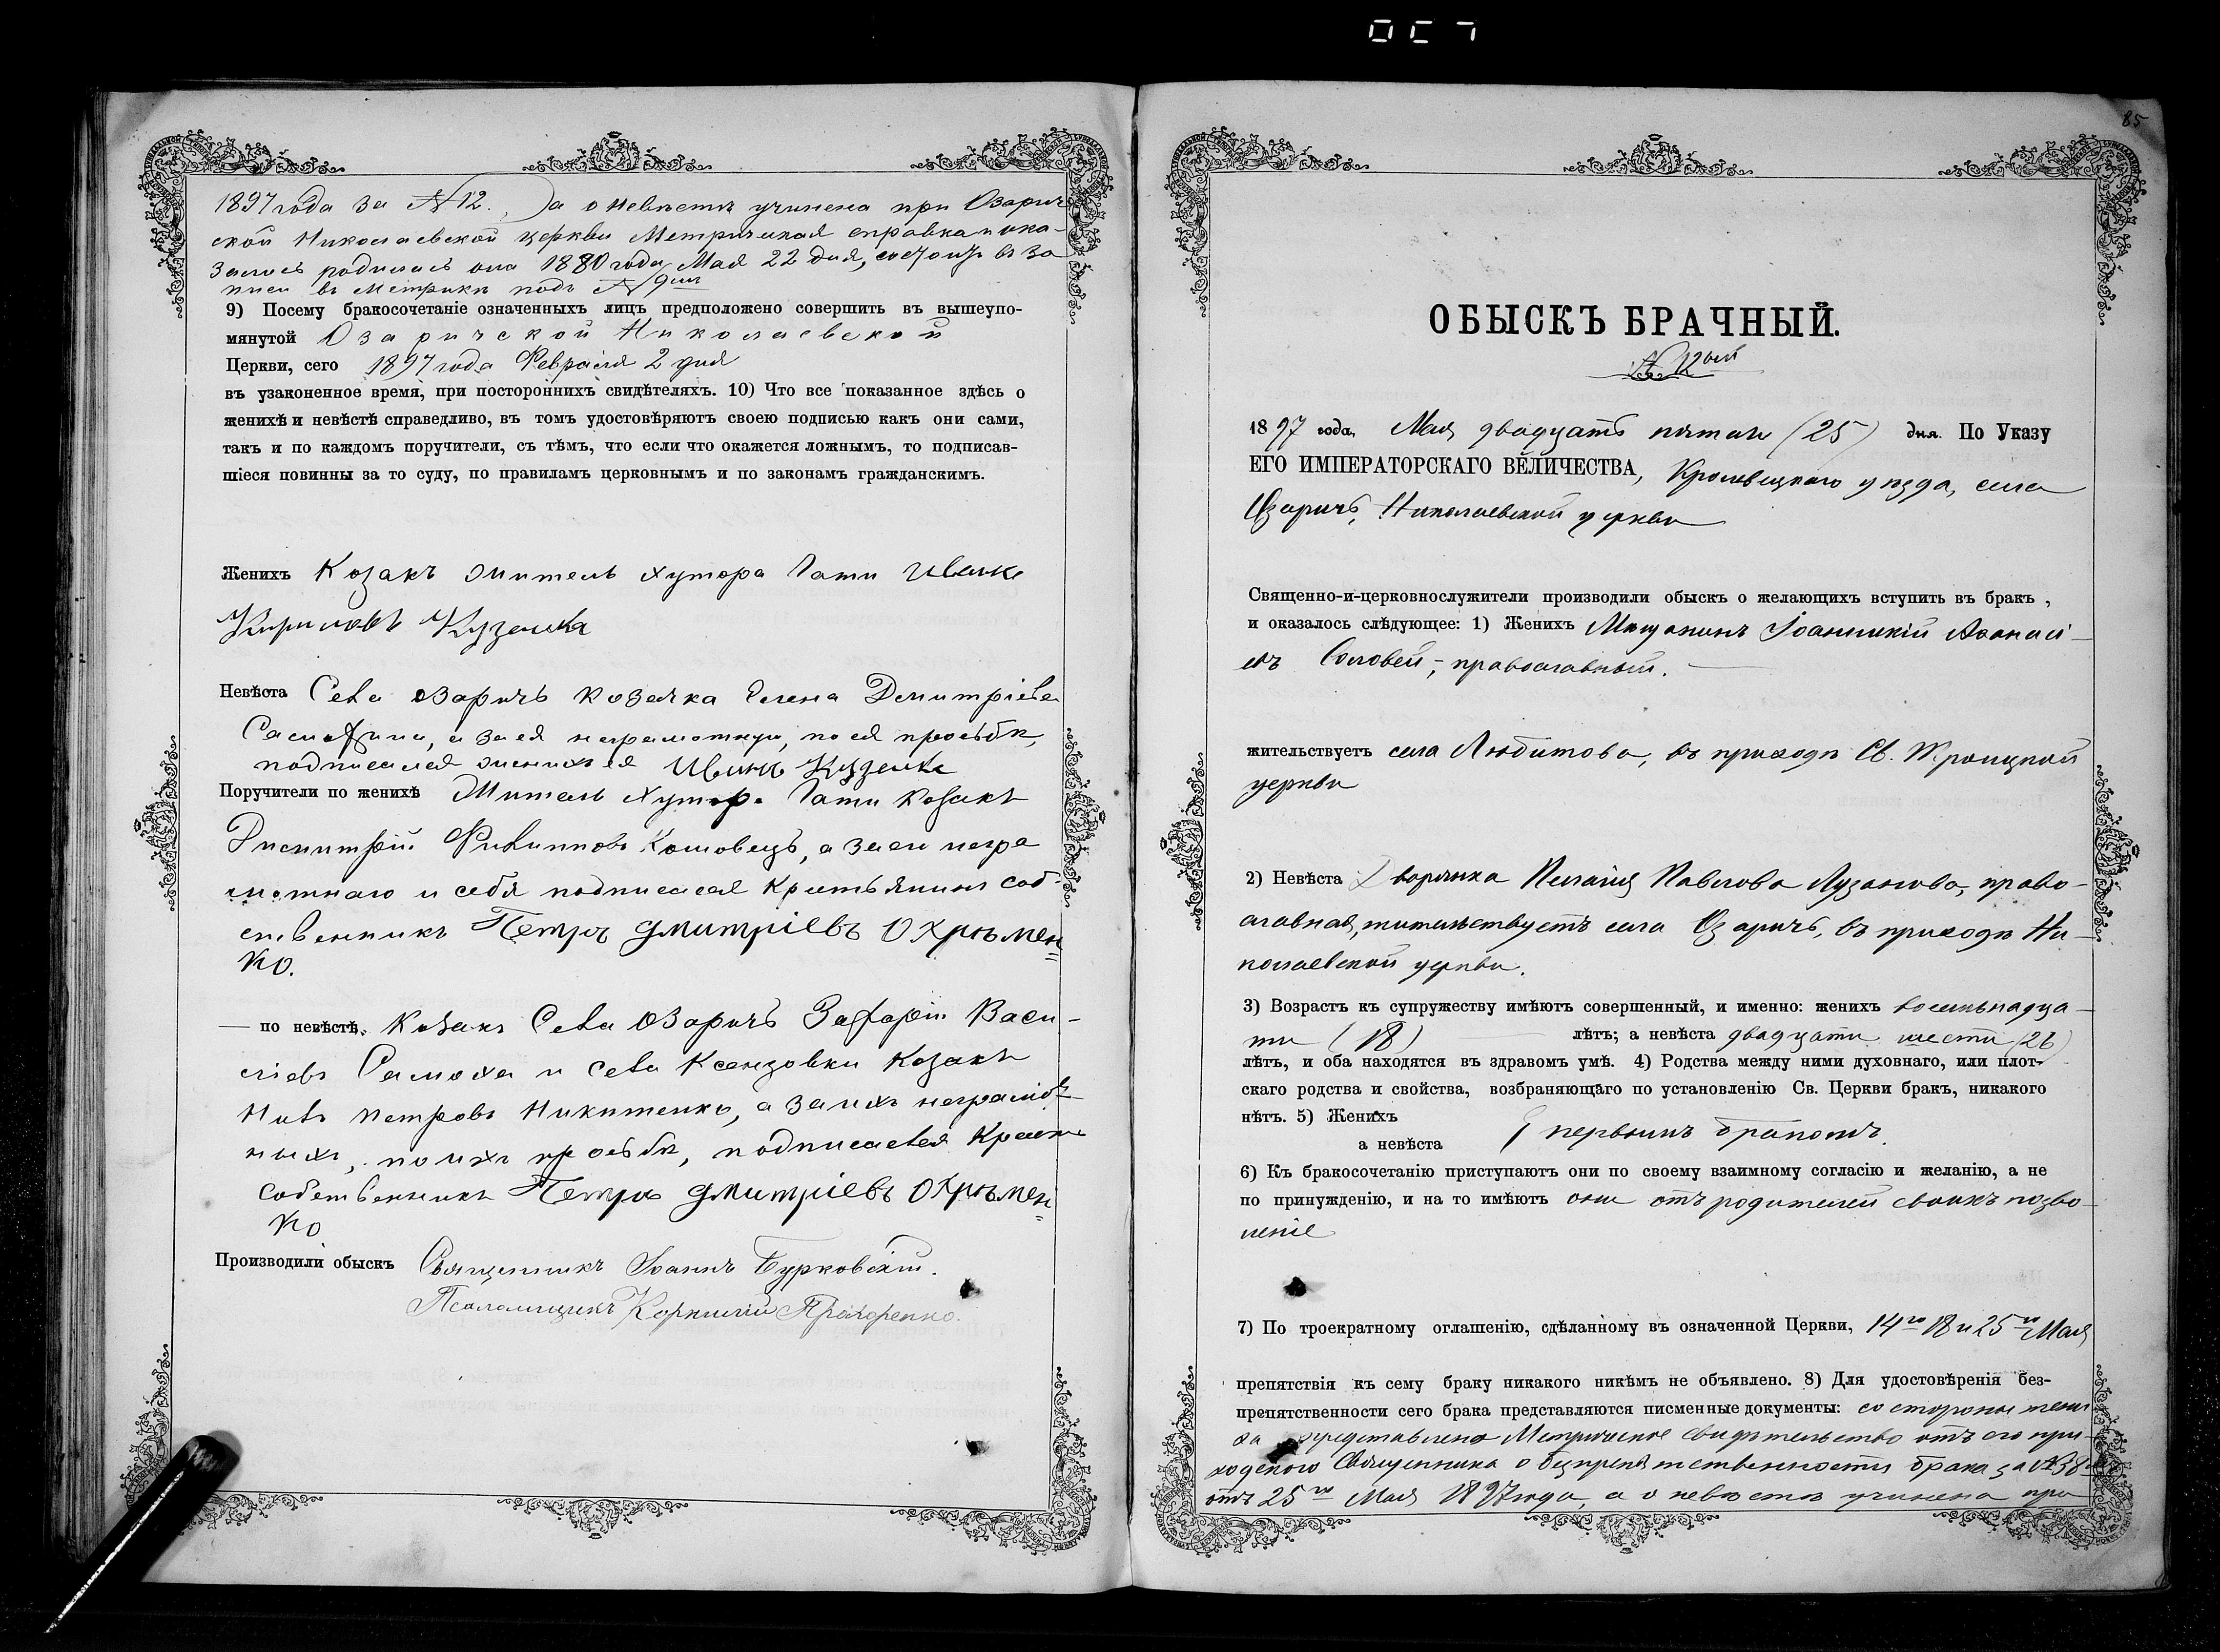 1897 года за № 12. Да о невѣстѣ учинена при Озарич
ской Николаевской церкви Метрическая справка и ока-
залось родилась она 1880 года Мая 22 дня, состоитъ въ за
писи въ Метрикѣ подъ № 9ым
9) Посему бракосочетаніе означенныхъ лицъ предположено совершить въ вышеупо-
мянутой Озаричской Николаевской
Церкви, сего 1897 года Февраля 2 дня
въ узаконенное время, при постороннихъ свидѣтеляхъ. 10) Что все показанное здѣсь о
женихѣ и невѣстѣ справедливо, въ томъ удостовѣряютъ своею подписью какъ они сами,
такъ и по каждомъ поручители, съ тѣмъ, что если что окажется ложнымъ, то подписав-
шіеся повинны за то суду, по правиламъ церковнымъ и по законамъ гражданскимъ.
Женихъ Козакъ житель хутора Гати
Кириловъ Кузенка
Невѣста Села Озаричъ козачка Елена Дмитріева
а за ея неграмотную, по ея просьбѣ,
подписался женихъ ея Кузенка
Поручители по женихѣ Житель Хутора Гати козакъ
Димитрій Филипповъ Кошовецъ, а за его негра
мотнаго и себя подписался крестьянинъ соб-
ственникъ Петръ Дмитріевъ Охрѣмен
ко.
— по невѣстѣ. Козакъ Села Озаричъ Захарій Васи-
ліевъ Самоха и села Ксендзовки Козакъ
Петровъ Никитенко, а за ихъ неграмот-
ныхъ, по ихъ просьбѣ, подписался Крест
собственникъ Петръ Дмитріевъ Охрѣмен
ко
Производили обыскъ Священникъ Іоаннъ Бурковскій.
Псаломщикъ Корнилій Прахоренко.
85
ОБЫСКЪ БРАЧНЫЙ.
№ 12ый
1897 года, Мая двадцать пятаго (25) дня. По Указу
ЕГО ИМПЕРАТОРСКАГО ВЕЛИЧЕСТВА, Кролевецкаго уѣзда, села
Озаричъ, Николаевской церкви
Священно-и-церковнослужители производили обыскъ о желающихъ вступить въ бракъ ,
и оказалось слѣдующее: 1) Женихъ Мѣщанинъ Іоанникій Аѳанасі-
евъ Соловей, - православный.
жительствуетъ села Любитова, въ приходѣ Св. Троицкой
церкви
2) Невѣста Дворянка Пелагія Павлова Лузанова, право-
славная, жительствуетъ села Озаричъ, въ приходѣ Ни-
колаевской церкви.
3) Возрастъ къ супружеству имѣютъ совершенный, и именно: женихъ восемьнадца-
ти (18) лѣтъ; а невѣста двадцати шести (26)
лѣтъ, и оба находятся въ здравомъ умѣ. 4) Родства между ними духовнаго, или плот-
скаго родства и свойства, возбраняющаго по установленію Св. Церкви бракъ, никакого
нѣтъ. 5) Женихъ
а невѣста } первымъ бракомъ.
6) Къ бракосочетанію приступаютъ они по своему взаимному согласію и желанію, а не
по принужденію, и на то имѣютъ они отъ родителей своихъ позво-
леніе
7) По троекратному оглашенію, сдѣланному въ означенной Церкви, 14го 18 и 25го Мая
препятствія къ сему браку никакого никѣмъ не объявлено. 8) Для удостовѣренія без-
препятственности сего брака представляются писменные документы: со стороны жени
ха представлено Метрическое свидѣтельство отъ его при-
ходского Священника о безпрепятственности брака за № 38
отъ 25го Мая 1897 года, а о невѣстѣ учинена при